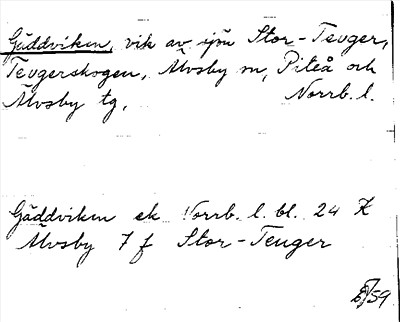 Gäddviken, vik av sjön Stor-Teuger,
Teugerskogen, Älvsby sn, Piteå och
Älvsby tg. Norrb. l.
Gäddviken ek Norrb. l. bl. 24 K
Älvsby 7 f Stor-Teuger
59